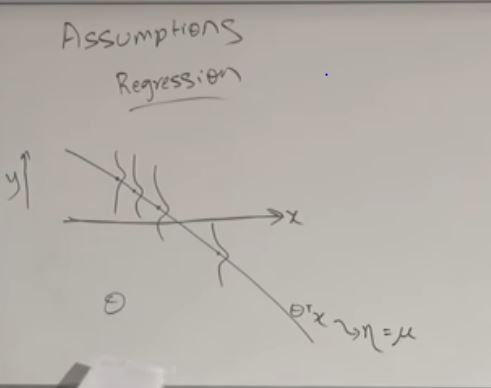 Assumptions
Regression
y
x
Θ
θᵀx ↝ η = μ